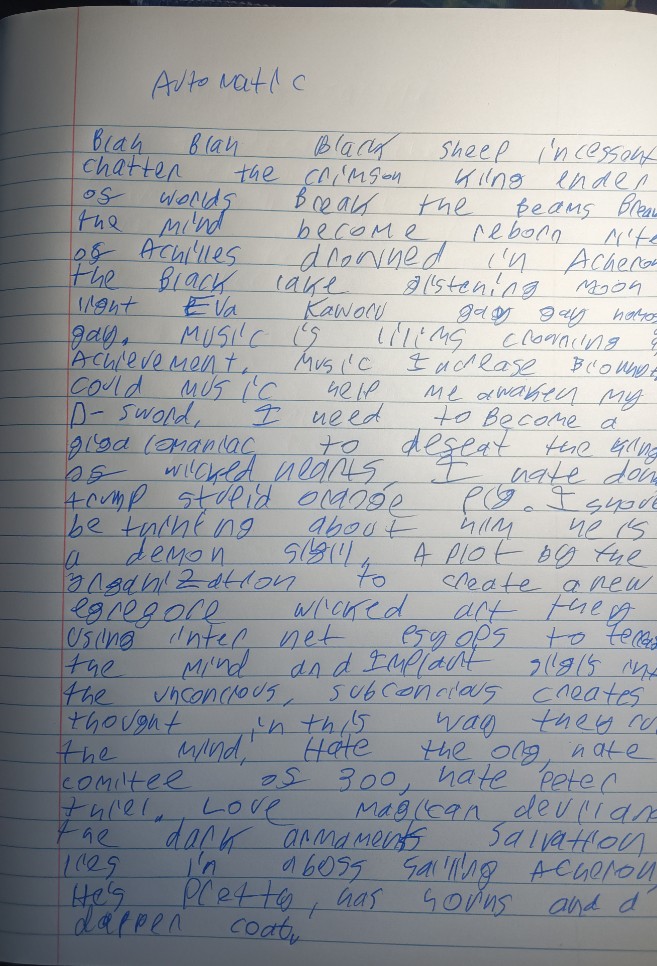 Automatic
Blah Blah Black sheep incessant
chatter the crimson king ender
of worlds Break the Beams Break
the mind become reborn rite
of Achilles drowned in Acheron
the Black lake glistening moon
light Eva Kaworu gay gay homo
gay. Music is lilims crowning
Achievement. Music Increase
could music help me awaken my
D-sword, I need to Become a
gigalomaniac to defeat the king
of wicked hearts, I hate don
trump stupid orange pig. I
be thinking about him he is
a demon sigil, A plot by the
organization to create a new
egregore wicked art they
using inter net psyops to
the mind and Implant sigils
the unconcious, subconcious creates
thought in this way they
the mind, Hate the org, hate
comitee of 300, hate Peter
thiel. Love magican
the dark armaments Salvation
lies in aboss sailing Acheron
He's Pretty, has horns and a
dapper coat,